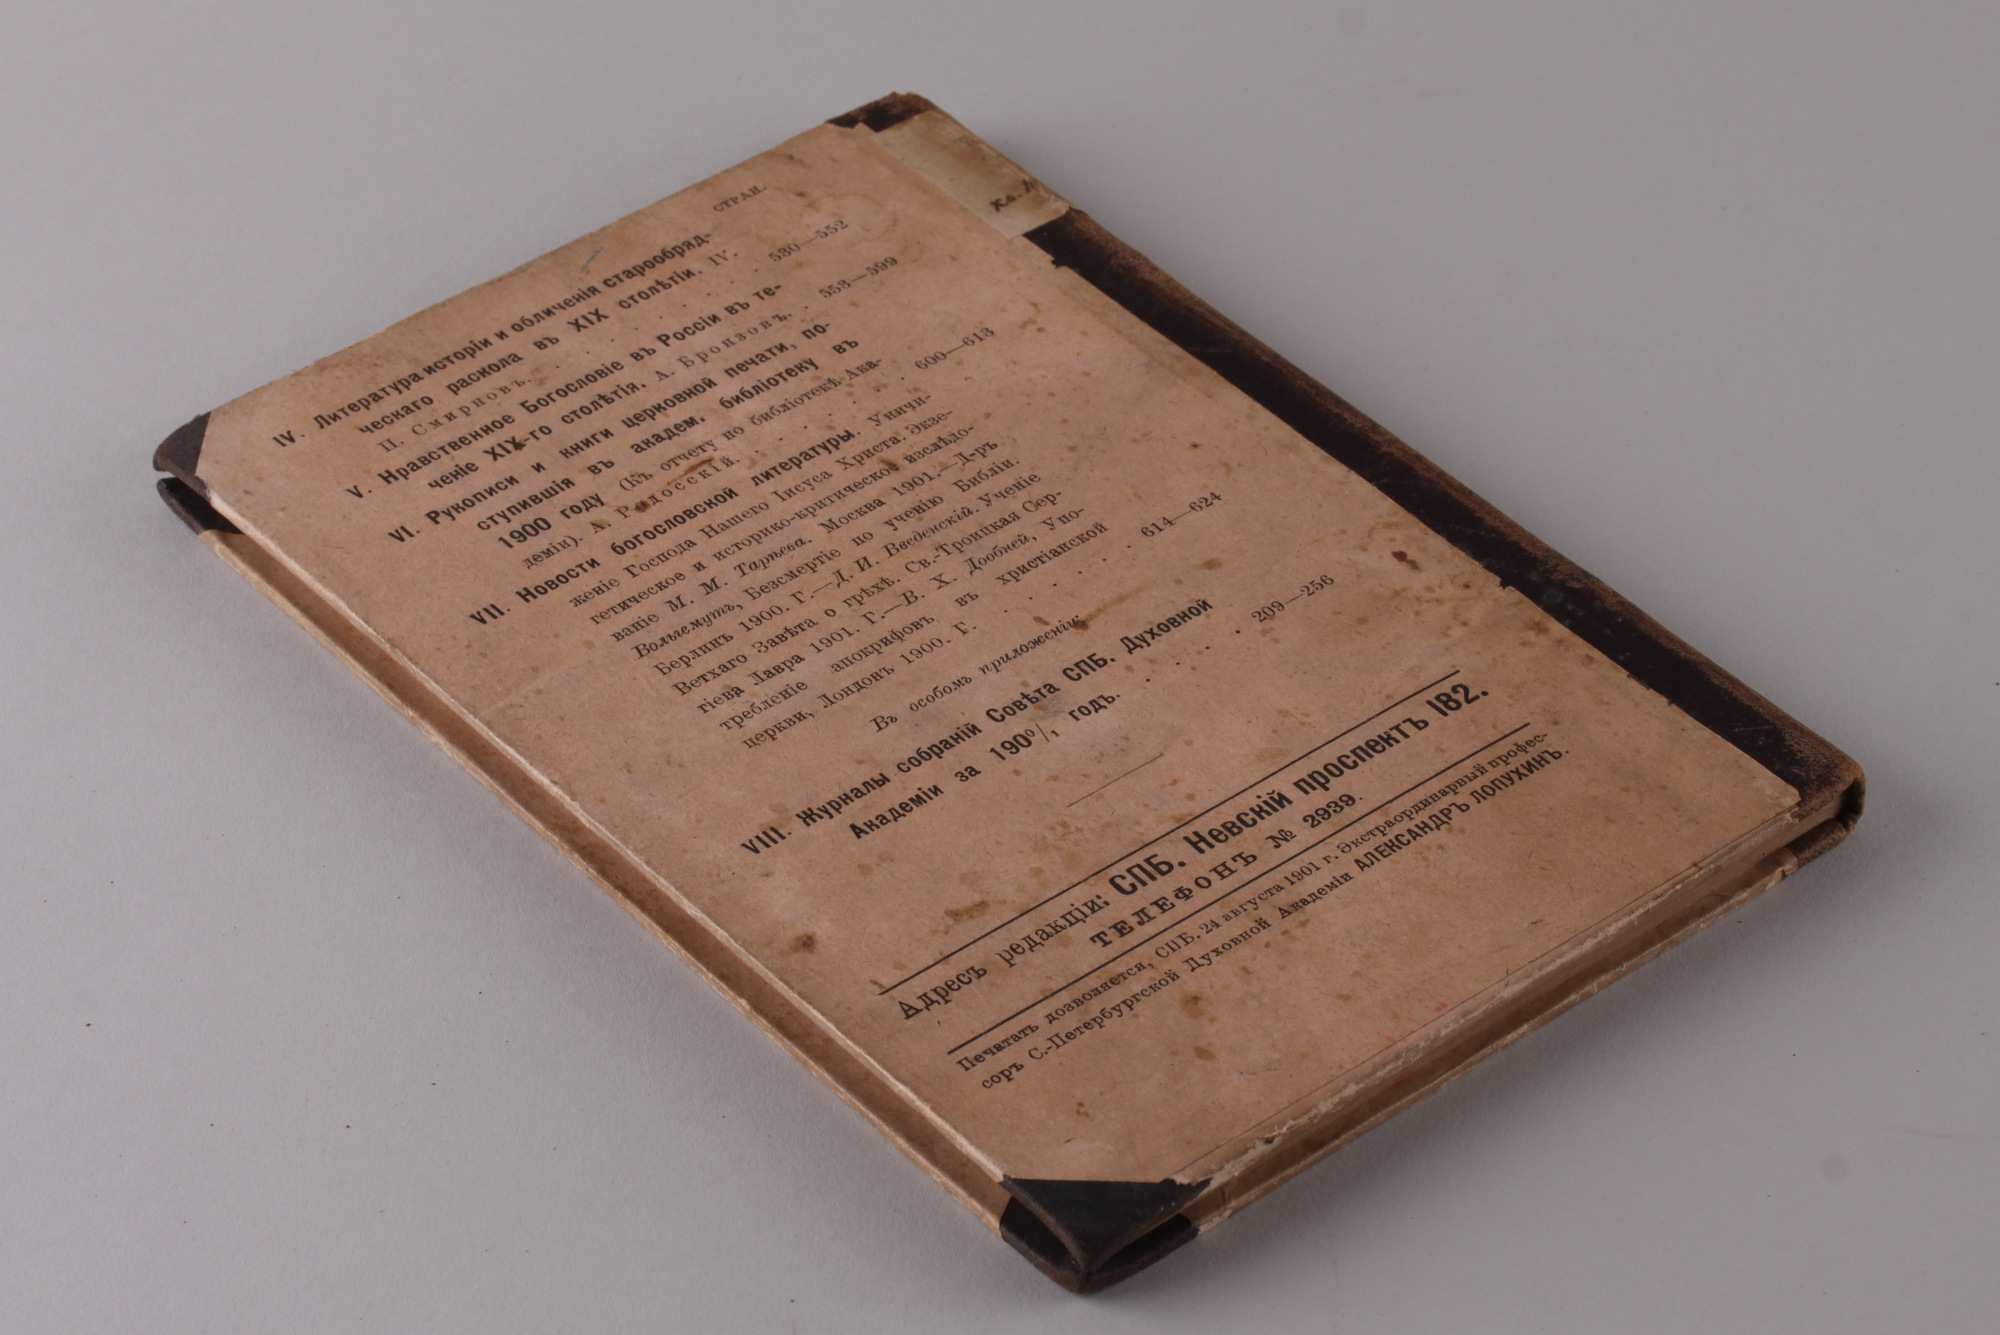 Ка.
СТРАН.
IV. Литература исторіи и обличенія старообряд-
ческаго раскола въ XIX столѣтіи. IV.
П. Смирновъ. . . . . . . . . . . 530—552
V. Нравственное Богословіе въ Россіи въ те-
ченіе XIX-го столѣтія. А. Бронзовъ. . 553—599
VI. Рукописи и книги церковной печати, по-
ступившія въ академ. библіотеку въ
1900 году (Къ отчету по библіотекѣ Ака-
деміи). А. Родосскій. . . . . . . . . 600—613
VII. Новости богословской литературы. Уничи-
женіе Господа Нашего Іисуса Христа. Экзе-
гетическое и историко-критическое изслѣдо-
ваніе М. М. Тарѣева. Москва 1901.—Д-ръ
Вольгемутъ, Безсмертіе по ученію Библіи.
Берлинъ 1900. Г.—Д. И. Введенскій. Ученіе
Ветхаго Завѣта о грѣхѣ. Св.-Троицкая Сер-
гіева Лавра 1901. Г.—В. Х. Дообней, Упо-
требленіе апокрифовъ въ христіанской
церкви, Лондонъ 1900. Г. . . . . . . . 614—624
Въ особомъ приложеніи:
VIII. Журналы собраній Совѣта СПБ. Духовной
Академіи за 190⁰/₁ годъ. . . . . . . 209—256
Адресъ редакціи: СПБ. Невскій проспектъ 182.
ТЕЛЕФОНЪ № 2939.
Печатать дозволяется, СПБ. 24 августа 1901 г. Экстраординарный профес-
соръ С.-Петербургской Духовной Академіи АЛЕКСАНДРЪ ЛОПУХИНЪ.